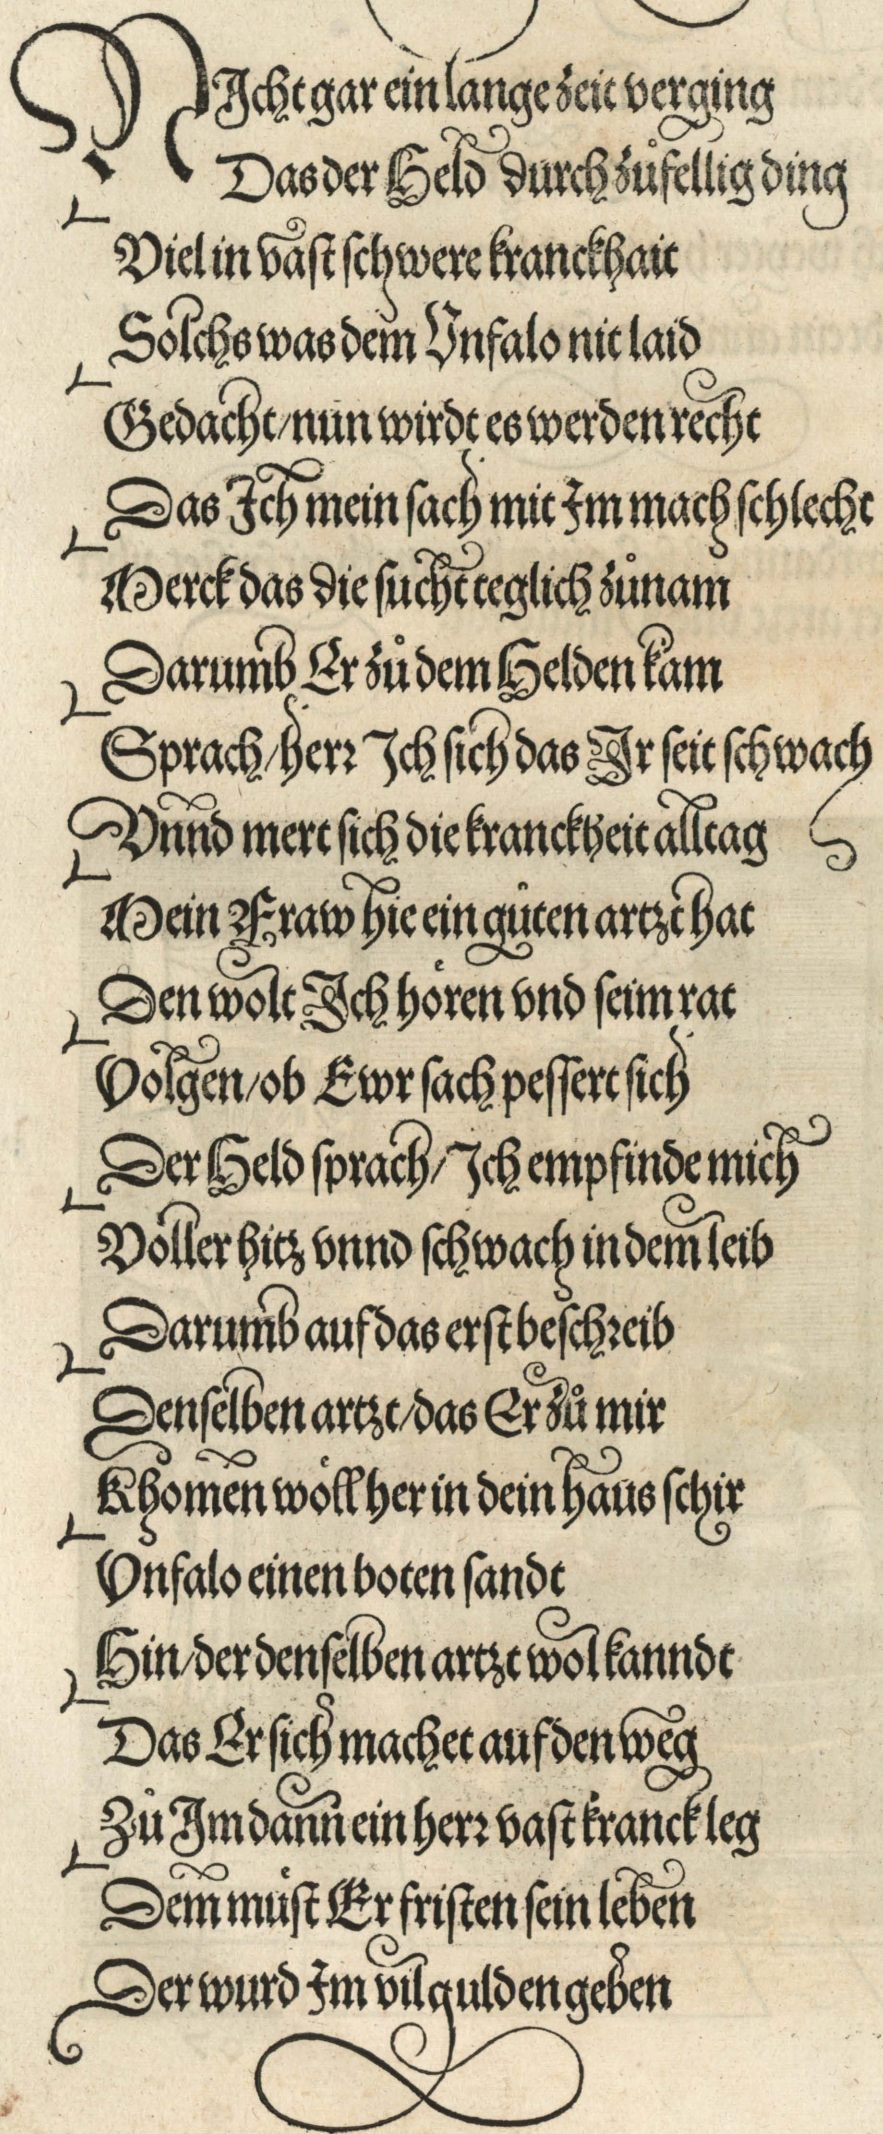 NIcht gar ein lange zeit verging
Das der Held durch zůfellig ding
Viel in vast schwere kranckhait
Solchs was dem Vnfalo nit laid
Gedacht/nun wirdt es werden recht
Das Ich mein sach mit Im mach schlecht
Merck das die sucht teglich zůnam
Darumb Er zů dem Helden kam
Sprach/herr Ich sich das Ir seit schwach
Vnnd mert sich die kranckheit alltag
Mein Fraw hie ein gůten artzt hat
Den wolt Ich hören vnd seim rat
Volgen/ob Ewr sach pessert sich
Der Held sprach/Ich empfinde mich
Voller hitz vnnd schwach in dem leib
Darumb auf das erst beschreib
Denselben artzt/das Er zů mir
Khomen wöll her in dein haus schir
Vnfalo einen boten sandt
Hin/der denselben artzt wol kanndt
Das Er sich machet auf den weg
Zů Im dann ein herr vast kranck leg
Dem můst Er fristen sein leben
Der wurd Im vil gulden geben